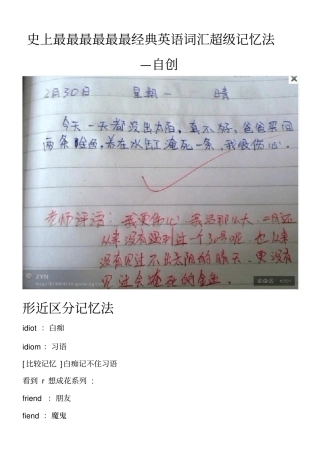 史上最最最最最最经典英语词汇超级记忆法
—自创
2月30日 星期一 晴
今天一天都没出太阳,真不好。爸爸买回
两条金鱼,若在水缸淹死一条,我恨伤心。
老师评语:我更伤心!我活那么大,二月还
从来没有遇到过一个30号呢,也从来
没有见过不出太阳的晴天,更没有
见过会淹死的金鱼
ZYN
形近区分记忆法
idiot : 白痴
idiom : 习语
[比较记忆]白痴记不住习语
看到 r 想成花系列 :
friend : 朋友
fiend : 魔鬼